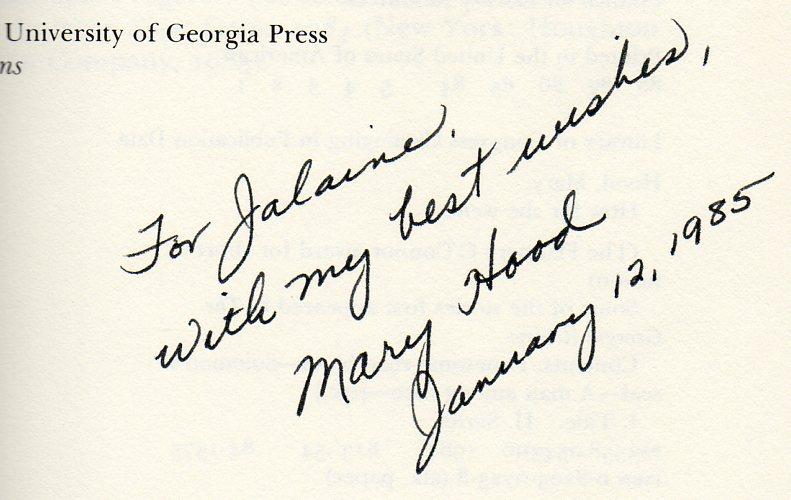 University of Georgia Press
ns
For Jalaine,
with my best wishes,
Mary Hood
January 12, 1985